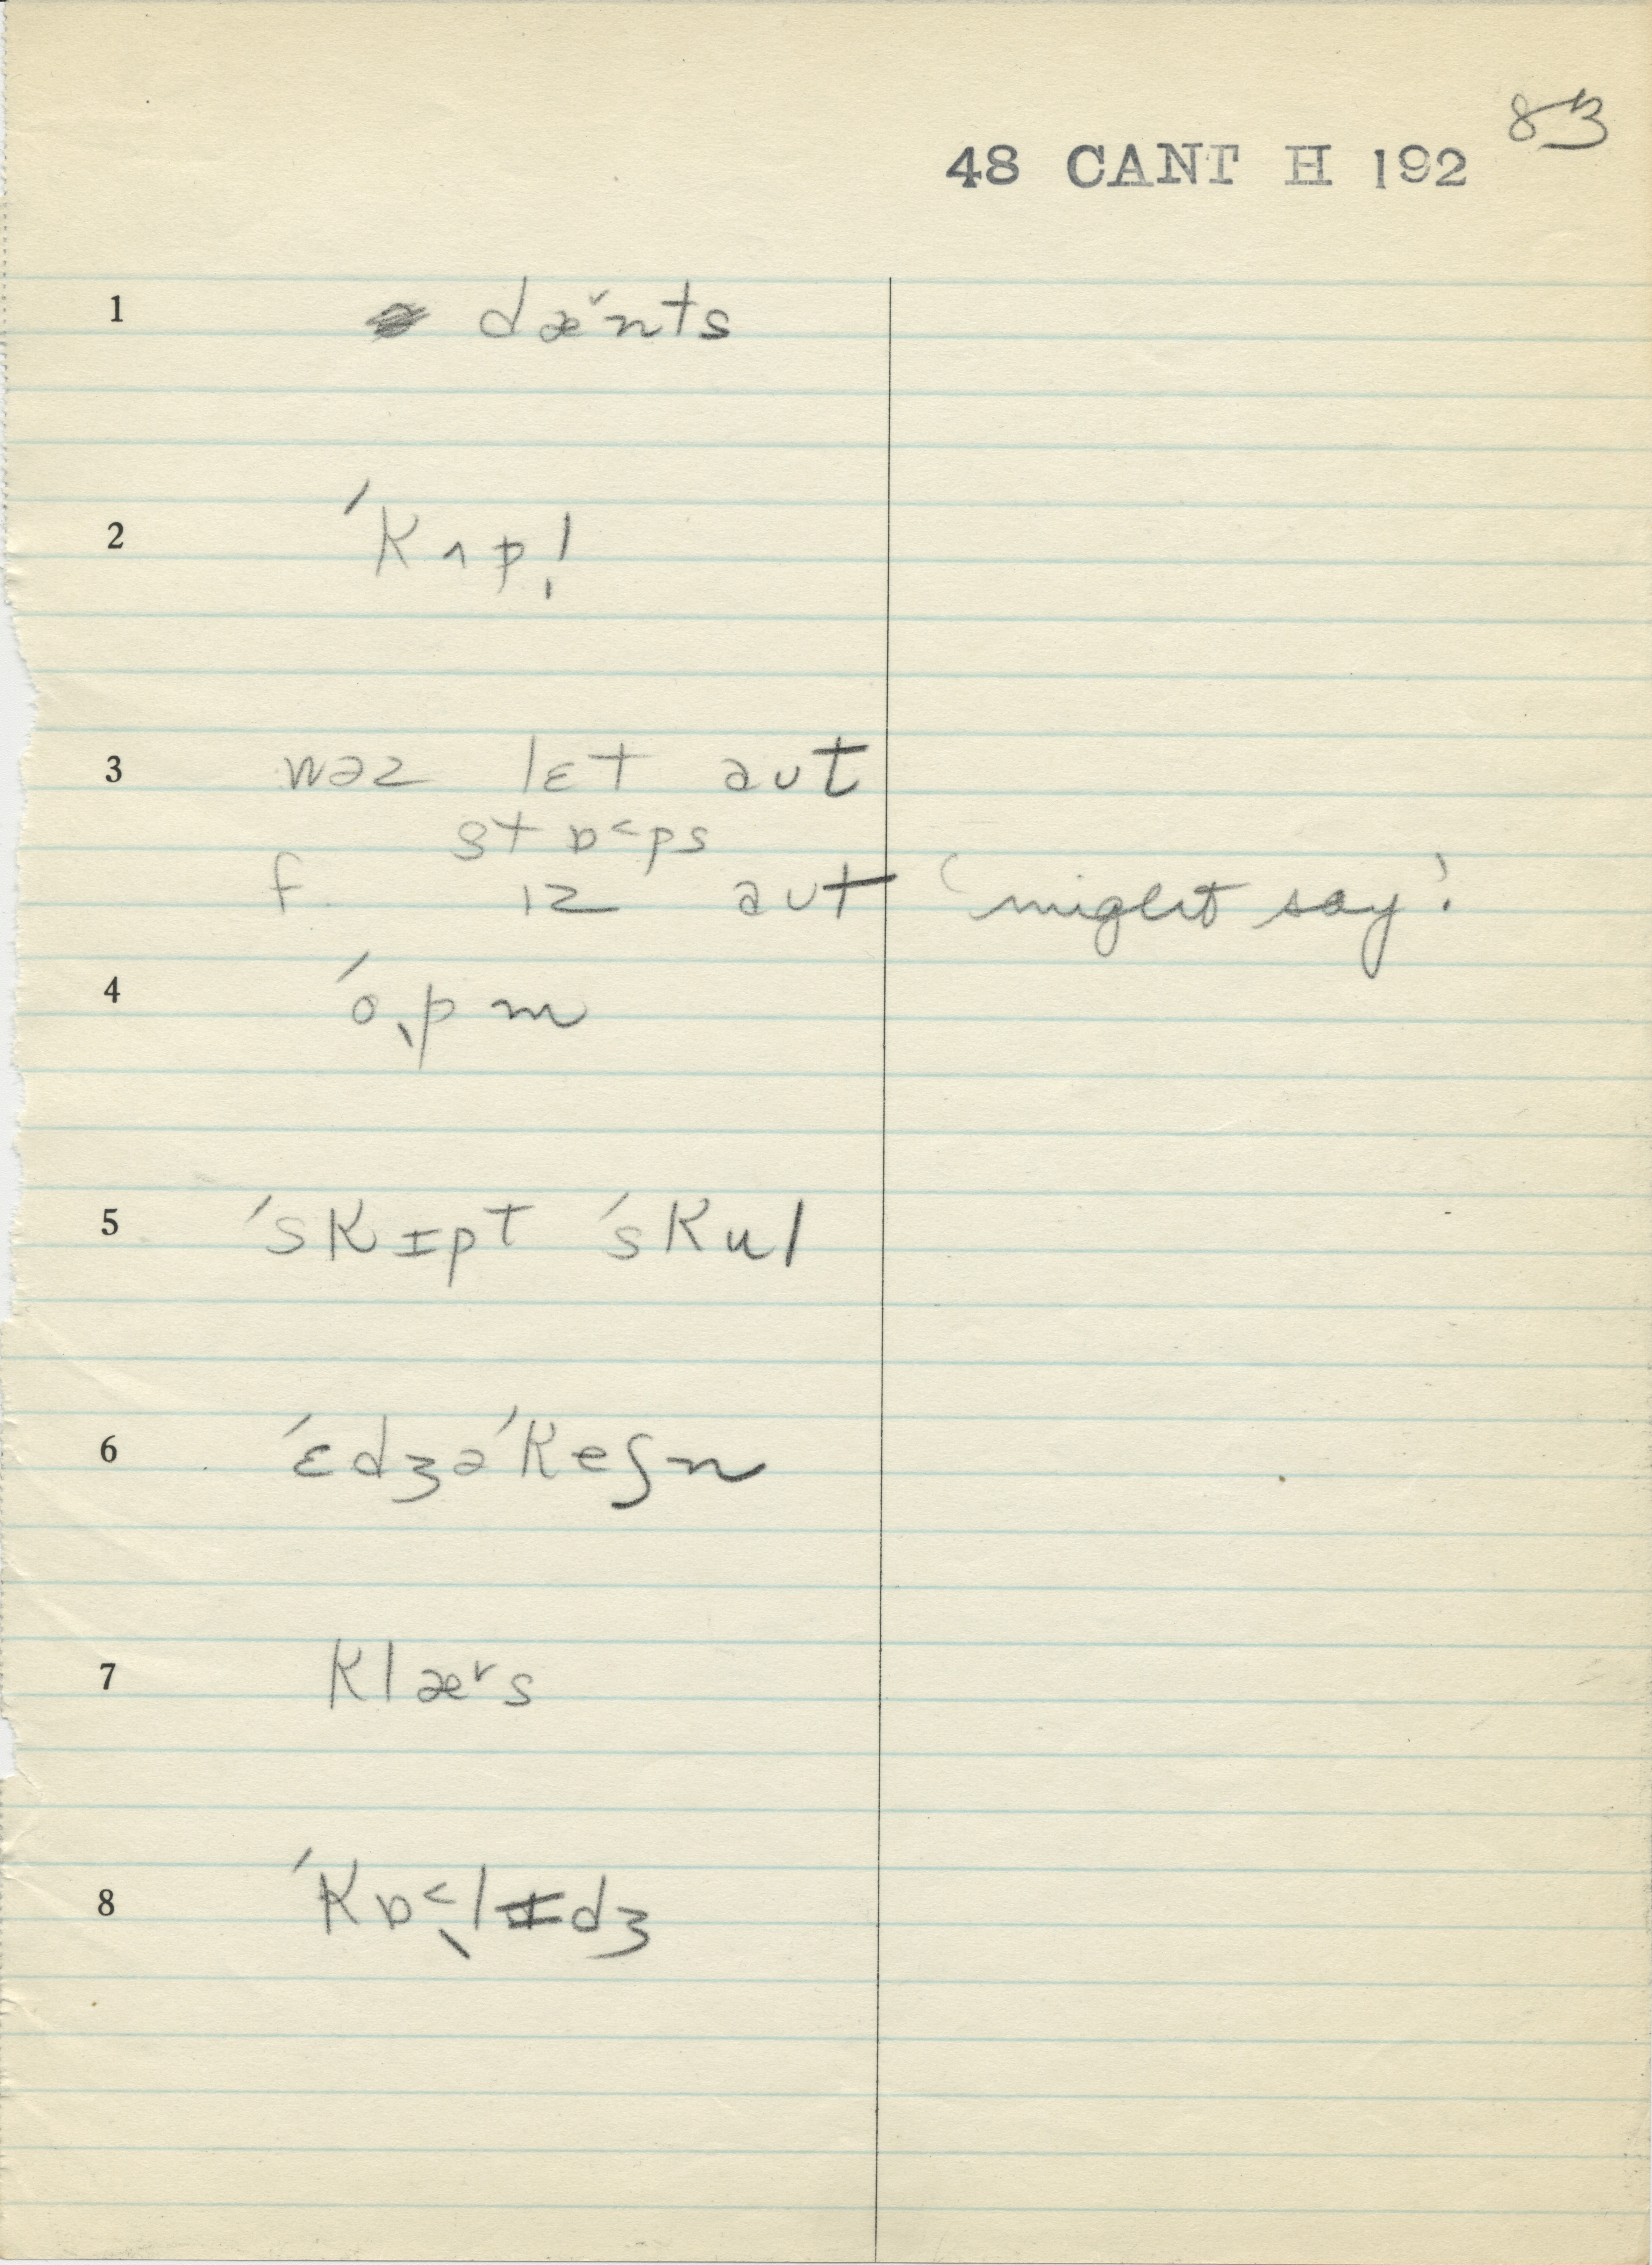 83
48 CANT H 192
1 dæ˅nts
2 ˈkʌp!
3 wəz lɛt aut
stɒ˂ps
f. ɪz aut 'might say'.
4 ˈoˌpm
5 ˈskɪpt ˈskul
6 ˈɛdʒəˈkeʃn
7 klæ˅s
8 ˈkɒ˂ˌlɪdʒ